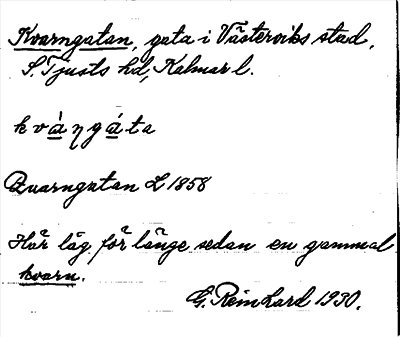 Kvarngatan, gata i Västerviks stad,
S. Tjusts hd, Kalmar l.
kvàŋgáta
Quarngatan L 1858
Här låg för länge sedan en gammal
kvarn.
G. Reinhard 1930.